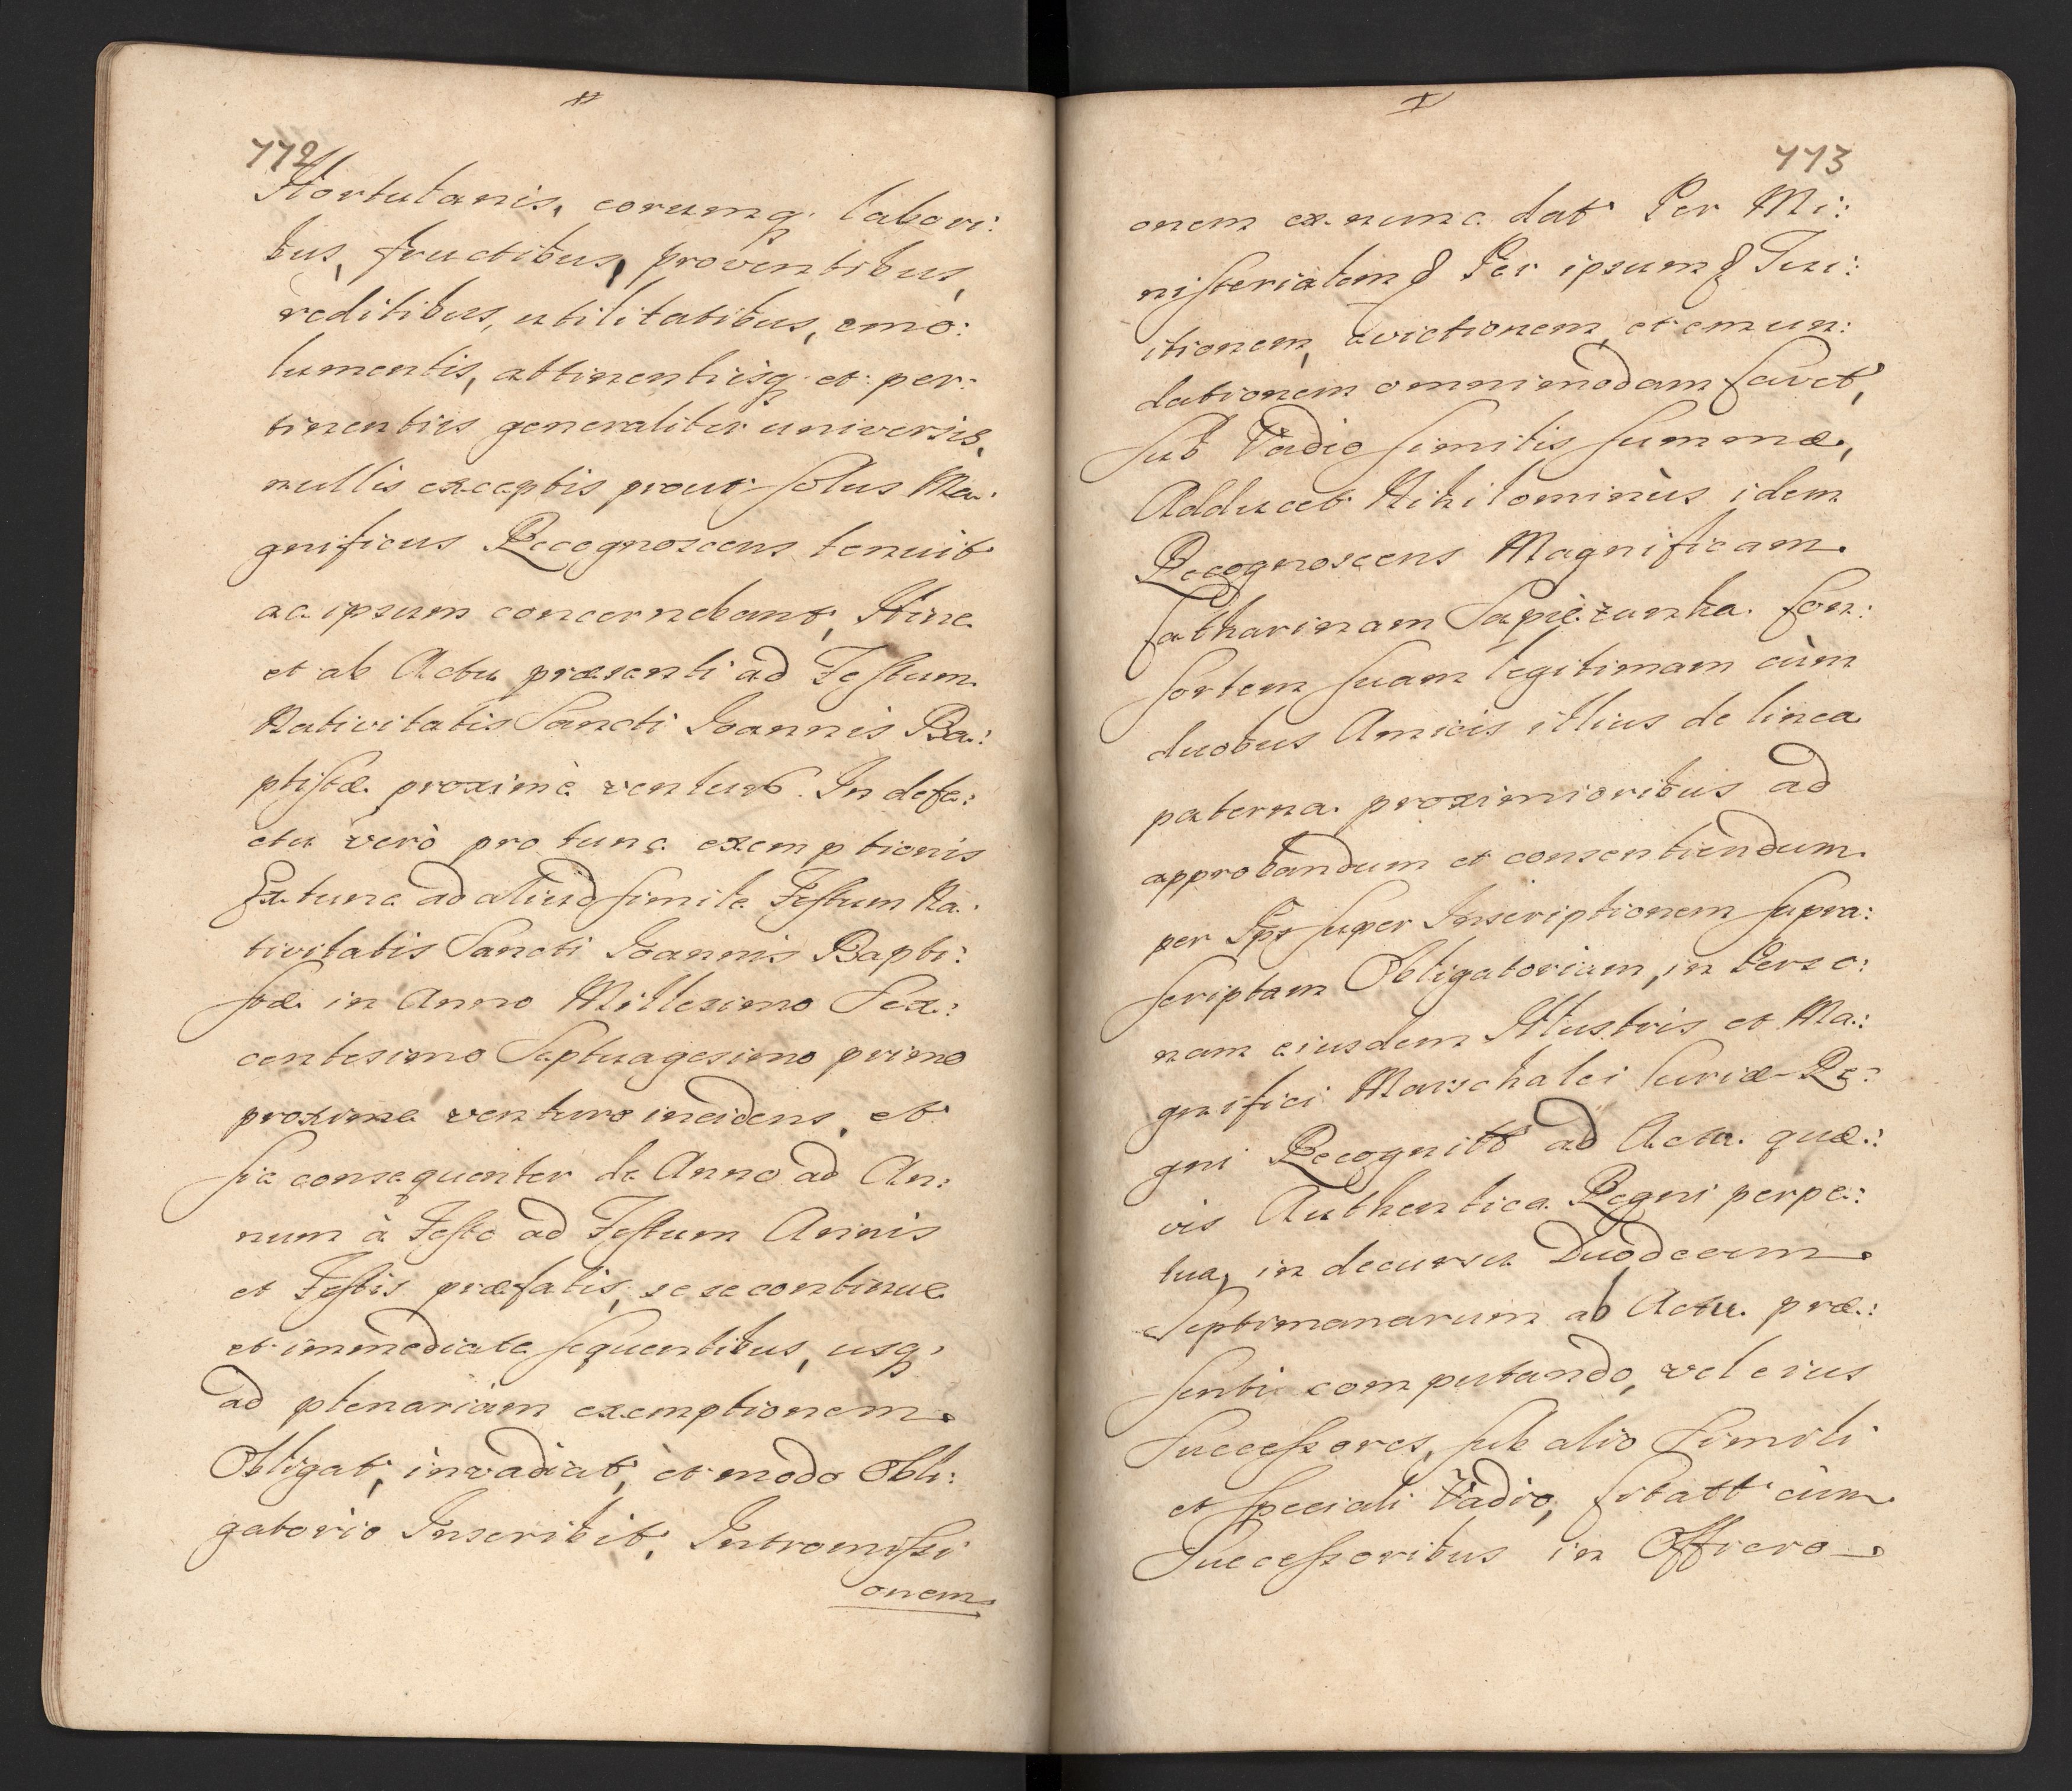 112
Hortulanis, eorumq. labori:
bus, fructibus, proventibus,
reditibus, utilitatibus, emo:
lumentis, attinentiisq. et per:
tinentiis generaliter universis,
nullis exceptis prout solus Ma:
gnificus Recognoscens tenuit
ac ipsum concernebant, Hinc
et ab Actu præsenti ad Festum
Nativitatis Sancti Ioannis Ba:
ptistæ proximè ventur. In defe:
ctu verò pro tunc exemptionis
Ex tunc ad aliud simile Festum Na:
tivitatis Sancti Ioannis Bapti:
stæ in Anno Millesimo Sex:
centesimo Septuagesimo primo
proxime venturo incidens, et
sic consequenter de Anno ad An:
num à Festo ad Festum Annis
et Festis præfatis, se se continue
et immediate sequentibus, usq,
ad plenariam exemptionem
Obligat, invadiat, et modo Obli:
gatorio Inscribit, Intromissi
onem
113
onem ex nunc dat Per Mi:
nisterialem & Per ipsum & Tui:
itionem, evictionem, et emun:
dationem omnimodam favet,
sub Vadio similis summæ,
Adducet Nihilominùs idem
Recognoscens Magnificam
Catharinam Sapiezanka Con:
sortem suam legitimam cùm
duobus Amicis illius de linea
paterna proximioribus ad
approbandum et consentiendum
per Ips super Inscriptionem supra:
scriptam Obligatoriam, in Perso:
nam eiusdem Illustris et Ma:
gnifici Marschalci Curiæ Re:
gni Recognitt ad Acta quæ:
vis Authentica Regni perpe:
tua, in decursu Duodecim
Septimanarum ab Actu præ:
senti computando, vel eius
Successores, sub alio simili
et speciali Vadio, sitatt cùm
Successoribus in Officio